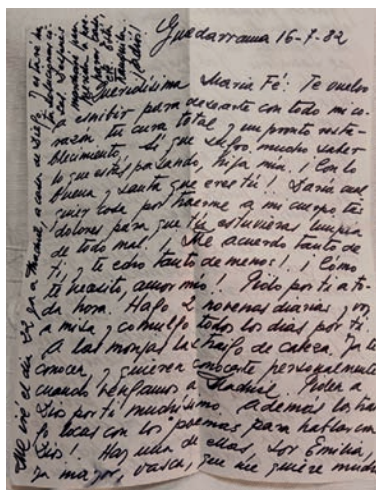 Guadarrama 16-7-82
Queridísima María Fé: Te vuelvo
a escribir para desearte con todo mi co-
razón tu cura total y un pronto resta-
blecimiento. Sí que sufro mucho saber
lo que estás pasando, hija mía. ¡Con lo
buena y santa que eres tú! Daría cual
quier cosa por traerme a mi cuerpo tus
dolores para que tú estuvieras limpia
de todo mal! ¡Me acuerdo tanto de
ti, y te echo tanto de menos! ¡Cómo
te necesito, amor mío! Pido por ti a to-
da hora. Hago 2 novenas diarias y voy
a misa y comulgo todos los días por ti.
A las monjas las traigo de cabeza. Ya te
conocen y quieren conocerte personalmente
cuando vengamos a Madrid. Piden a
Dios por ti muchísimo. Además los traigo
locas con los poemas para hablar con
Dios! Hay una de ellas, Sor Emilia,
ya mayor, vasca, que me quiere mucho
Me iré el día 22 ya a Madrid, a casa de